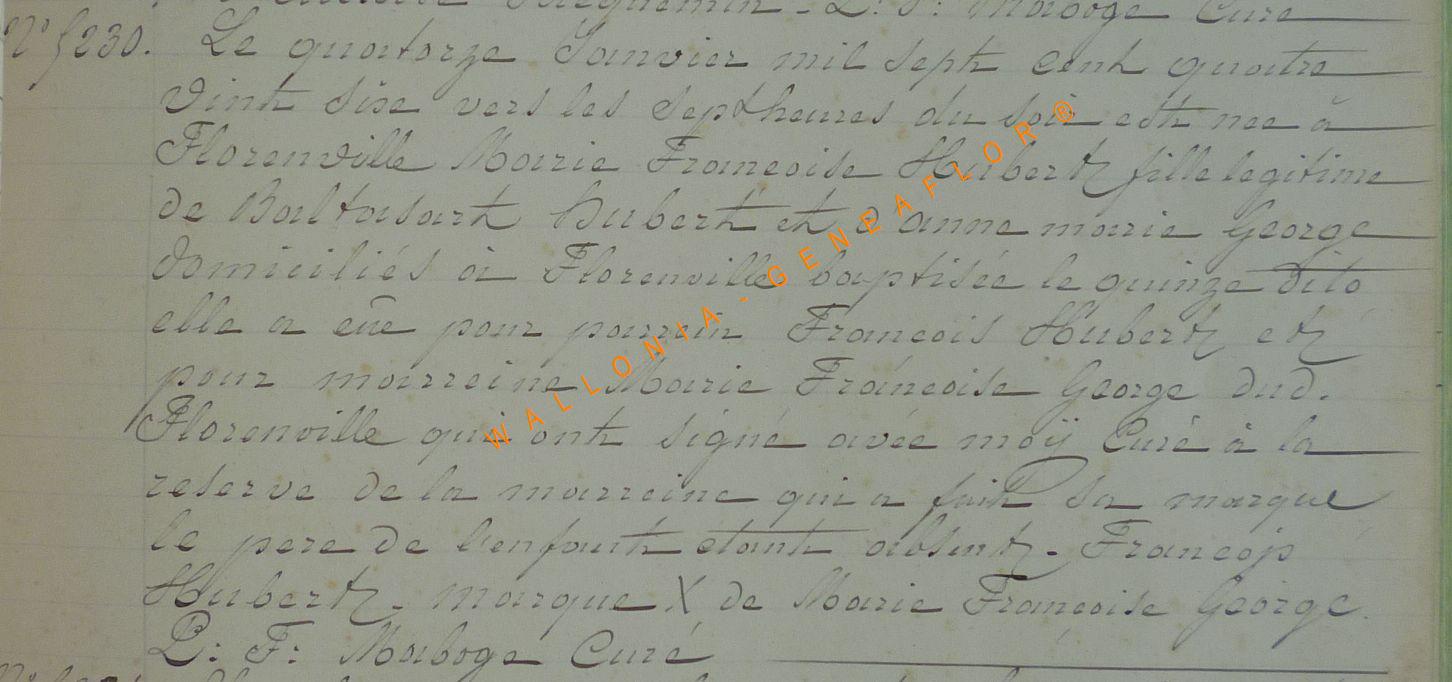 Jacquemin - L: F: Maboge Curé
N° 5230. Le quatorze Janvier mil sept cent quatre
vint sixe vers les sept heures du soir est nee à
Florenville Marie Francoise Hubert fille legitime
de Baltasart Hubert et d'anne marie George
domiciliés à Florenville baptisée le quinze dito
elle a eûe pour parrein Francois Hubert et
pour marreine Marie Francoise George dud.
Florenville qui ont signé avée moÿ Curé à la
reserve de la marreine qui a fait sa marque
le pere de l'enfant etant absent. Francojs
Hubert. marque X de Marie Francoise George.
L: F: Maboge Curé
WALLONIA - GENEAFLOR®